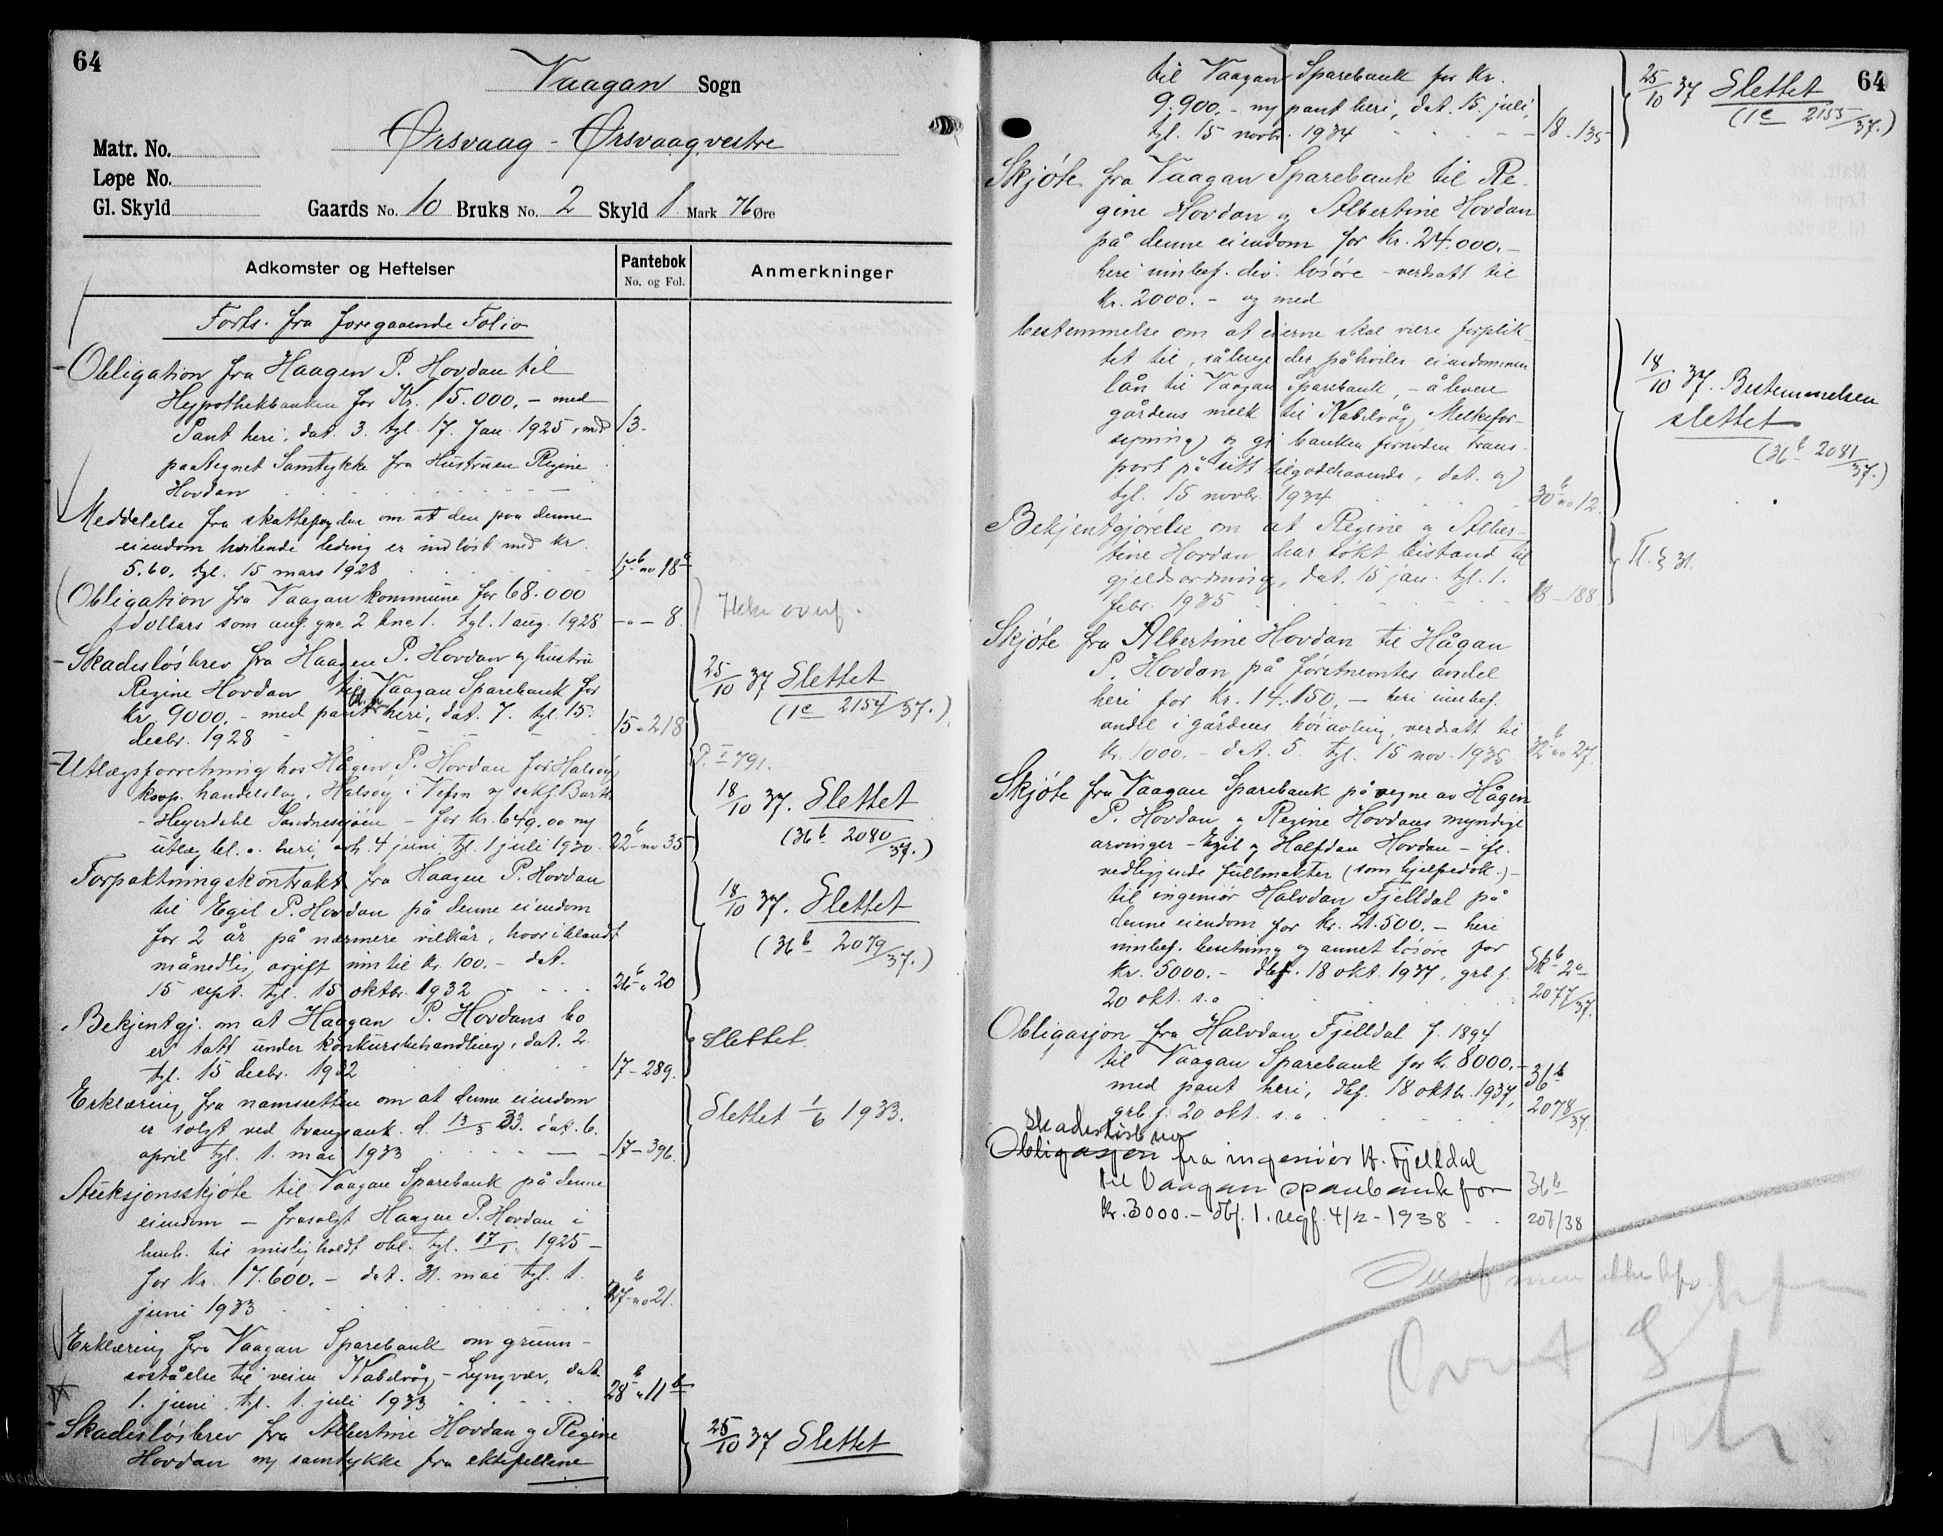 64
Vaagan Sogn
Matr. No.
Ørsvaag - Ørsvaag vestre
Løpe No.
Gl. Skyld
Gaards No. 10 Bruks No. 2 Skyld 1 Mark 76 Øre
Adkomster og Heftelser
Pantebok
No. og Fol.
Anmerkninger
Forts. fra foregaaende Folio
Obligation fra Haagen P. Hovdan til
Hypothekbanken for Kr. 15.000.- med
Pant heri, dat. 3. tgl. 17. Jan. 1925, med 13-
paategnet Samtykke fra Hustruen Regine
Hovdan
Meddelelse fra skattefogden om at den paa denne
eiendom heilende leding er indløst med kr.
5.60. tgl. 15 mars 1928
Obligation fra Vaagan kommune for 68.000
dollars som ang. gno 2 bno 1. tgl. 1 aug. 1928 -"- 8. Ikke overf.
Skadesløsbrev fra Haagen P. Hovdan og hustru
Regine Hovdan til Vaagan Sparebank for
kr. 9000.- med pant heri, dat. 7. tgl. 15.
decbr. 1928 15-218
25/10 37 Slettet
(1c 2154/37.)
Utlægsforretning hos Hågen P. Hovdan for Halsøy
P. I 791.
koop. handelslag, Halsøy i Vefsn og sakf. Barth
-Heyerdahl Sandnessjøen - for kr. 649.00 m/
utlæg bl. a. heri, avh. 4 juni, tgl. 1 juli 1930. 22b no 35
18/10 37. Slettet
(36b 2080/37.)
Forpaktningskontrakt fra Haagen P. Hovdan
til Egil P. Hovdan på denne eiendom
for 2 år på nærmere vilkår, hvoriblandt
månedlig avgift inntil kr. 100.- dat.
15 sept. tgl. 15 oktbr. 1932 26b " 20
18/10 37. Slettet
(36b 2079/37.)
Bekjentgj. om at Haagan P. Hovdans bo
er tatt under konkursbehandling, dat. 2.
tgl. 15 decbr. 1932 17-289.
Slettet.
Erklæring fra namsretten om at denne eiendom
er solgt ved tvangsauk. d. 13/3 33. dat. 6.
april tgl. 1. mai 1933 17-396.
Slettet 1/6 1933.
Auksjonsskjøte til Vaagan Sparebank på denne
eiendom - frasolgt Haagen P. Hovdan i
henh. til misligholdt obl. tgl. 17/1. 1925 -
for kr. 17.600.- dat. 31. mai tgl. 1.
juni 1933 27b no 21.
Erklæring fra Vaagan Sparebank om grunn-
avståelse til veien Kabelvåg - Lyngvær, dat.
1. juni tgl. 1. juli 1933 28b " 11b
Skadesløsbrev fra Albertine Hovdan og Regine
Hovdan m/ samtykke fra ektefellene
25/10 37 Slettet
64
til Vaagan Sparebank for kr.
9.900.- m/ pant heri, dat. 15. juli,
tgl. 15 novbr. 1934 18-135
25/10 37 Slettet
(1c 2155/37.)
Skjøte fra Vaagan Sparebank til Re-
gine Hovdan og Albertine Hovdan
på denne eiendom for kr. 24.000.-
heri innbef. div. løsøre - verdsatt til
kr. 2000.- og med
bestemmelse om at eierne skal være forplik-
tet til, sålenge der påhviler eiendommen
lån til Vaagan Sparebank, - å levere
gårdens melk til Kabelvåg Melkefor-
syning og gi banken fornøden trans-
port på sitt tilgodehavende, dat. og
tgl. 15 novbr. 1934 30b no 12.
18/10 37. Bestemmelsen
slettet
(36b 2081/37.)
Bekjentgjørelse om at Regine og Alber-
tine Hovdan har søkt bistand til
gjeldsordning, dat. 15 jan. tgl. 1.
febr. 1935 18-188.
Tl. § 31.
Skjøte fra Albertine Hovdan til Hågan
P. Hovdan på førstnevntes andel
heri for kr. 14.150.- heri innbef.
andel i gårdens høiavling, verdsatt til
kr. 1000.- dat. 5 tgl. 15 nov. 1935. 32b no 27.
Skjøte fra Vaagan Sparebank på vegne av Hågen
P. Hovdan og Regine Hovdans myndige
arvinger - Egil og Halfdan Hovdan - ifl.
vedliggende fullmakter (som hjelpedok.) -
til ingeniør Halvdan Fjelldal på
denne eiendom for kr. 21.500.- heri
innbef. besetning og annet løsøre for
kr. 5000.- dbf. 18 okt. 1937, grb.f.
20 okt. s.a.
2077/37.
Obligasjon fra Halvdan Fjelldal f. 1894
til Vaagan Sparebank for kr 8000.-
med pant heri, dbf. 18 oktbr. 1937,
grb.f. 20 okt. s.a.
36b
2078/37
Skadesløsbrev
Obligasjon fra ingeniør H. Fjelldal
til Vaagan sparebank for
kr. 3000.- dbf. 1. regf. 4/2-1938
36b
207/38